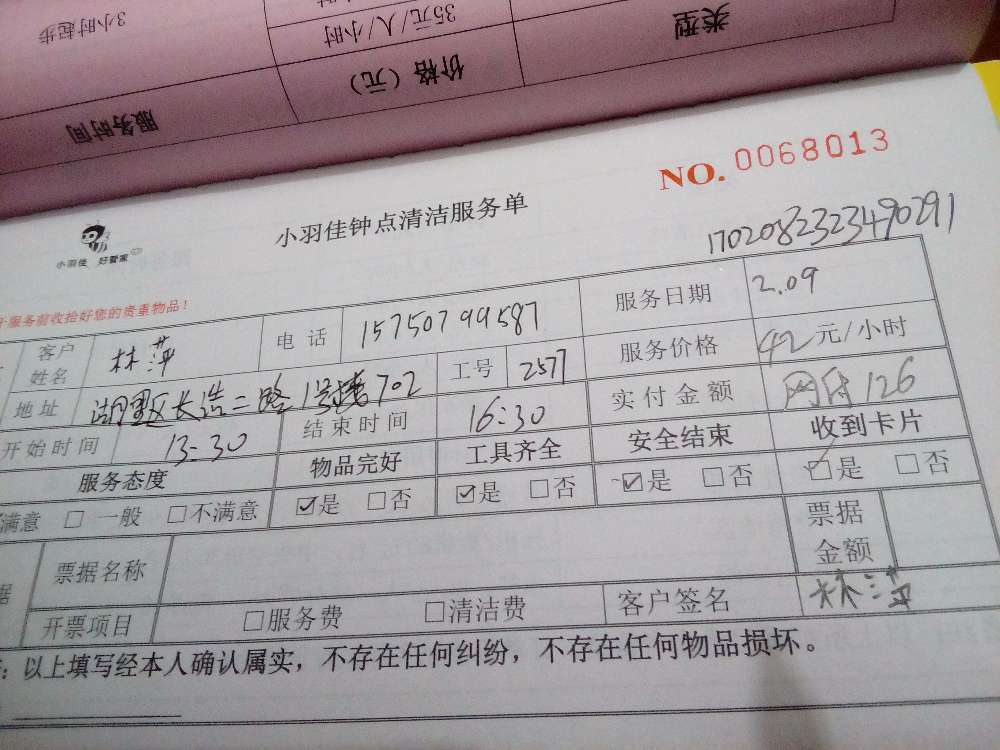 3小时起步
35元/人/小时
类型
价格（元）
服务时间
NO. 0068013
小羽佳 好管家
小羽佳钟点清洁服务单
170208232349 0291
服务前收拾好您的贵重物品！
客户姓名 林萍 电话 15750799587 服务日期 2.09
地址 湖里区长浩二路1号楼702 工号 2577 服务价格 42元/小时
开始时间 13:30 结束时间 16:30 实付金额 网付126
服务态度 物品完好 工具齐全 安全结束 收到卡片
满意 □ 一般 □不满意 ☑是 □否 ☑是 □否 ☑是 □否 ☑是 □否
票据名称 票据金额
开票项目 □服务费 □清洁费 客户签名 林萍
：以上填写经本人确认属实，不存在任何纠纷，不存在任何物品损坏。